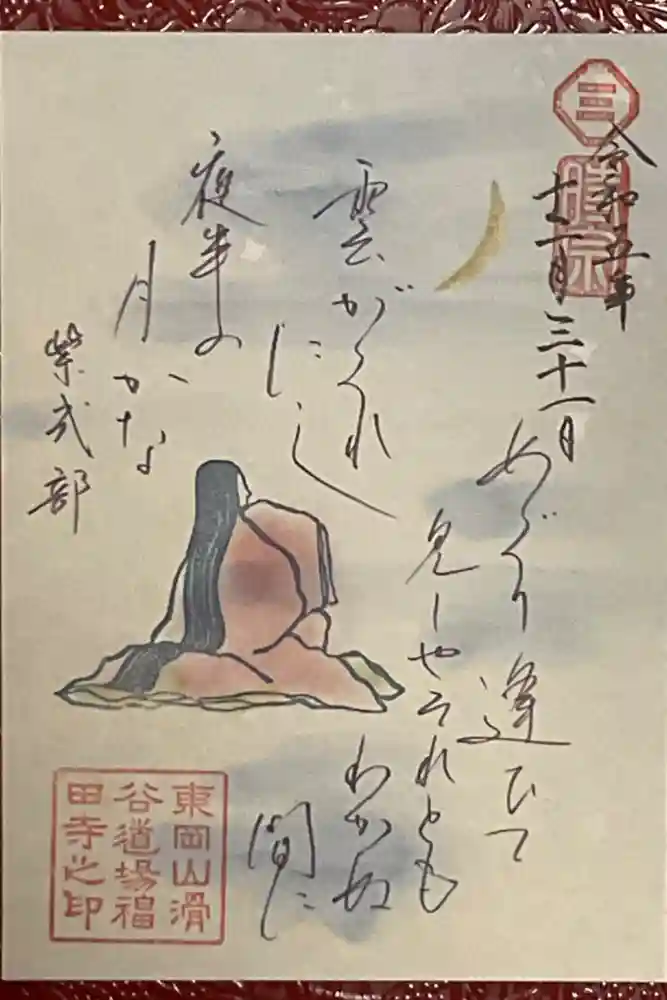 令和五年
十二月三十一日
三
時宗
めぐり逢ひて
見しやそれとも
わかぬ
間に
雲がくれ
にし
夜半の
月かな
紫式部
東岡山滑
谷道場福
田寺之印